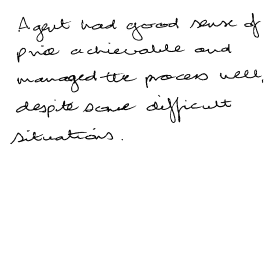 Agent had good sense of
price achievable and
managed the process well,
despite some difficult
situations.